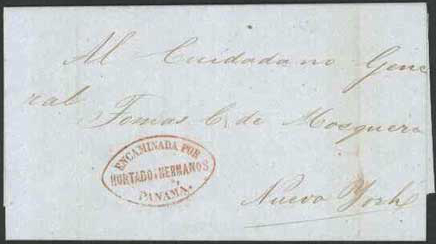 Al Cuidadano Gene
ral
Tomas C. de Mosquera
ENCAMINADA POR
HURTADO & HERMANOS
PANAMA.
Nueva York